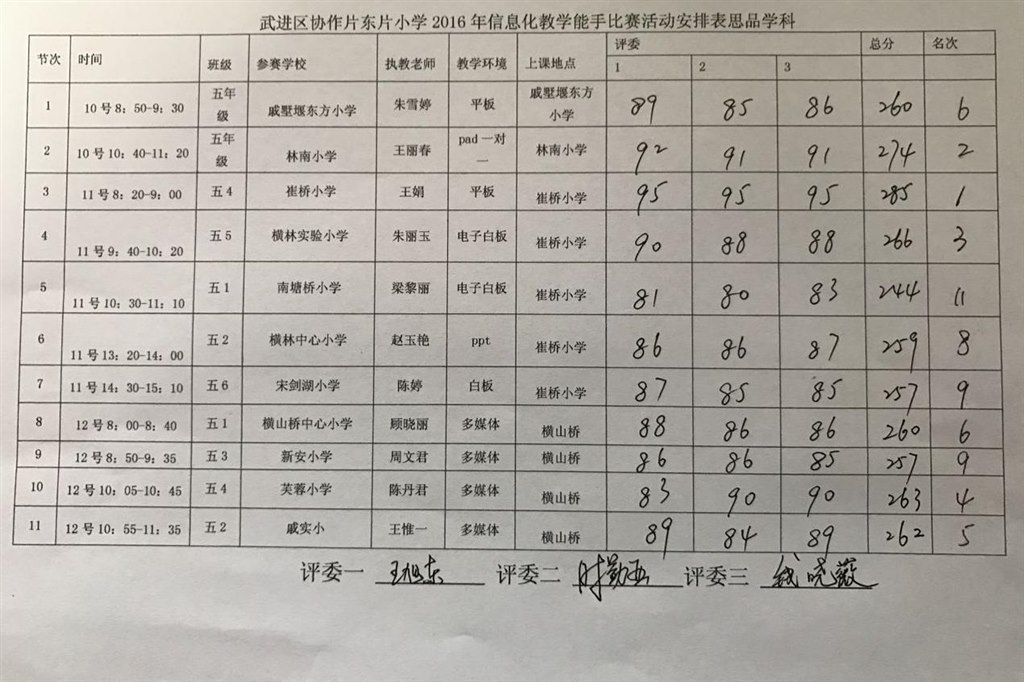 武进区协作片东片小学 2016 年信息化教学能手比赛活动安排表思品学科
节次 时间 班级 参赛学校 执教老师 教学环境 上课地点 评委 总分 名次
1 2 3
1 10 号 8：50-9：30 五年级 戚墅堰东方小学 朱雪婷 平板 戚墅堰东方小学 89 85 86 260 6
2 10 号 10：40-11：20 五年级 林南小学 王丽春 pad 一对一 林南小学 92 91 91 274 2
3 11 号 8：20-9：00 五 4 崔桥小学 王娟 平板 崔桥小学 95 95 95 285 1
4 11 号 9：40-10：20 五 5 横林实验小学 朱丽玉 电子白板 崔桥小学 90 88 88 266 3
5 11 号 10：30-11：10 五 1 南塘桥小学 梁黎丽 电子白板 崔桥小学 81 80 83 244 11
6 11 号 13：20-14：00 五 2 横林中心小学 赵玉艳 ppt 崔桥小学 86 86 87 259 8
7 11 号 14：30-15：10 五 6 宋剑湖小学 陈婷 白板 崔桥小学 87 85 85 257 9
8 12 号 8：00-8：40 五 1 横山桥中心小学 顾晓丽 多媒体 横山桥 88 86 86 260 6
9 12 号 8：50-9：35 五 3 新安小学 周文君 多媒体 横山桥 86 86 85 257 9
10 12 号 10：05-10：45 五 4 芙蓉小学 陈丹君 多媒体 横山桥 83 90 90 263 4
11 12 号 10：55-11：35 五 2 戚实小 王惟一 多媒体 横山桥 89 84 89 262 5
评委一 王旭东 评委二 时勤亚 评委三 钱晓薇